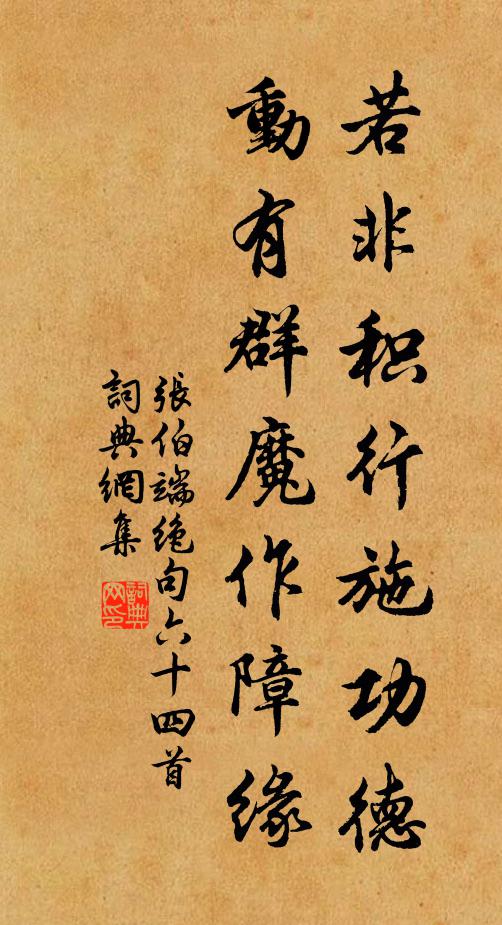 若非积行施功德
動有群魔作障緣
張伯端绝句六十四首
詞典網集
詞典网印